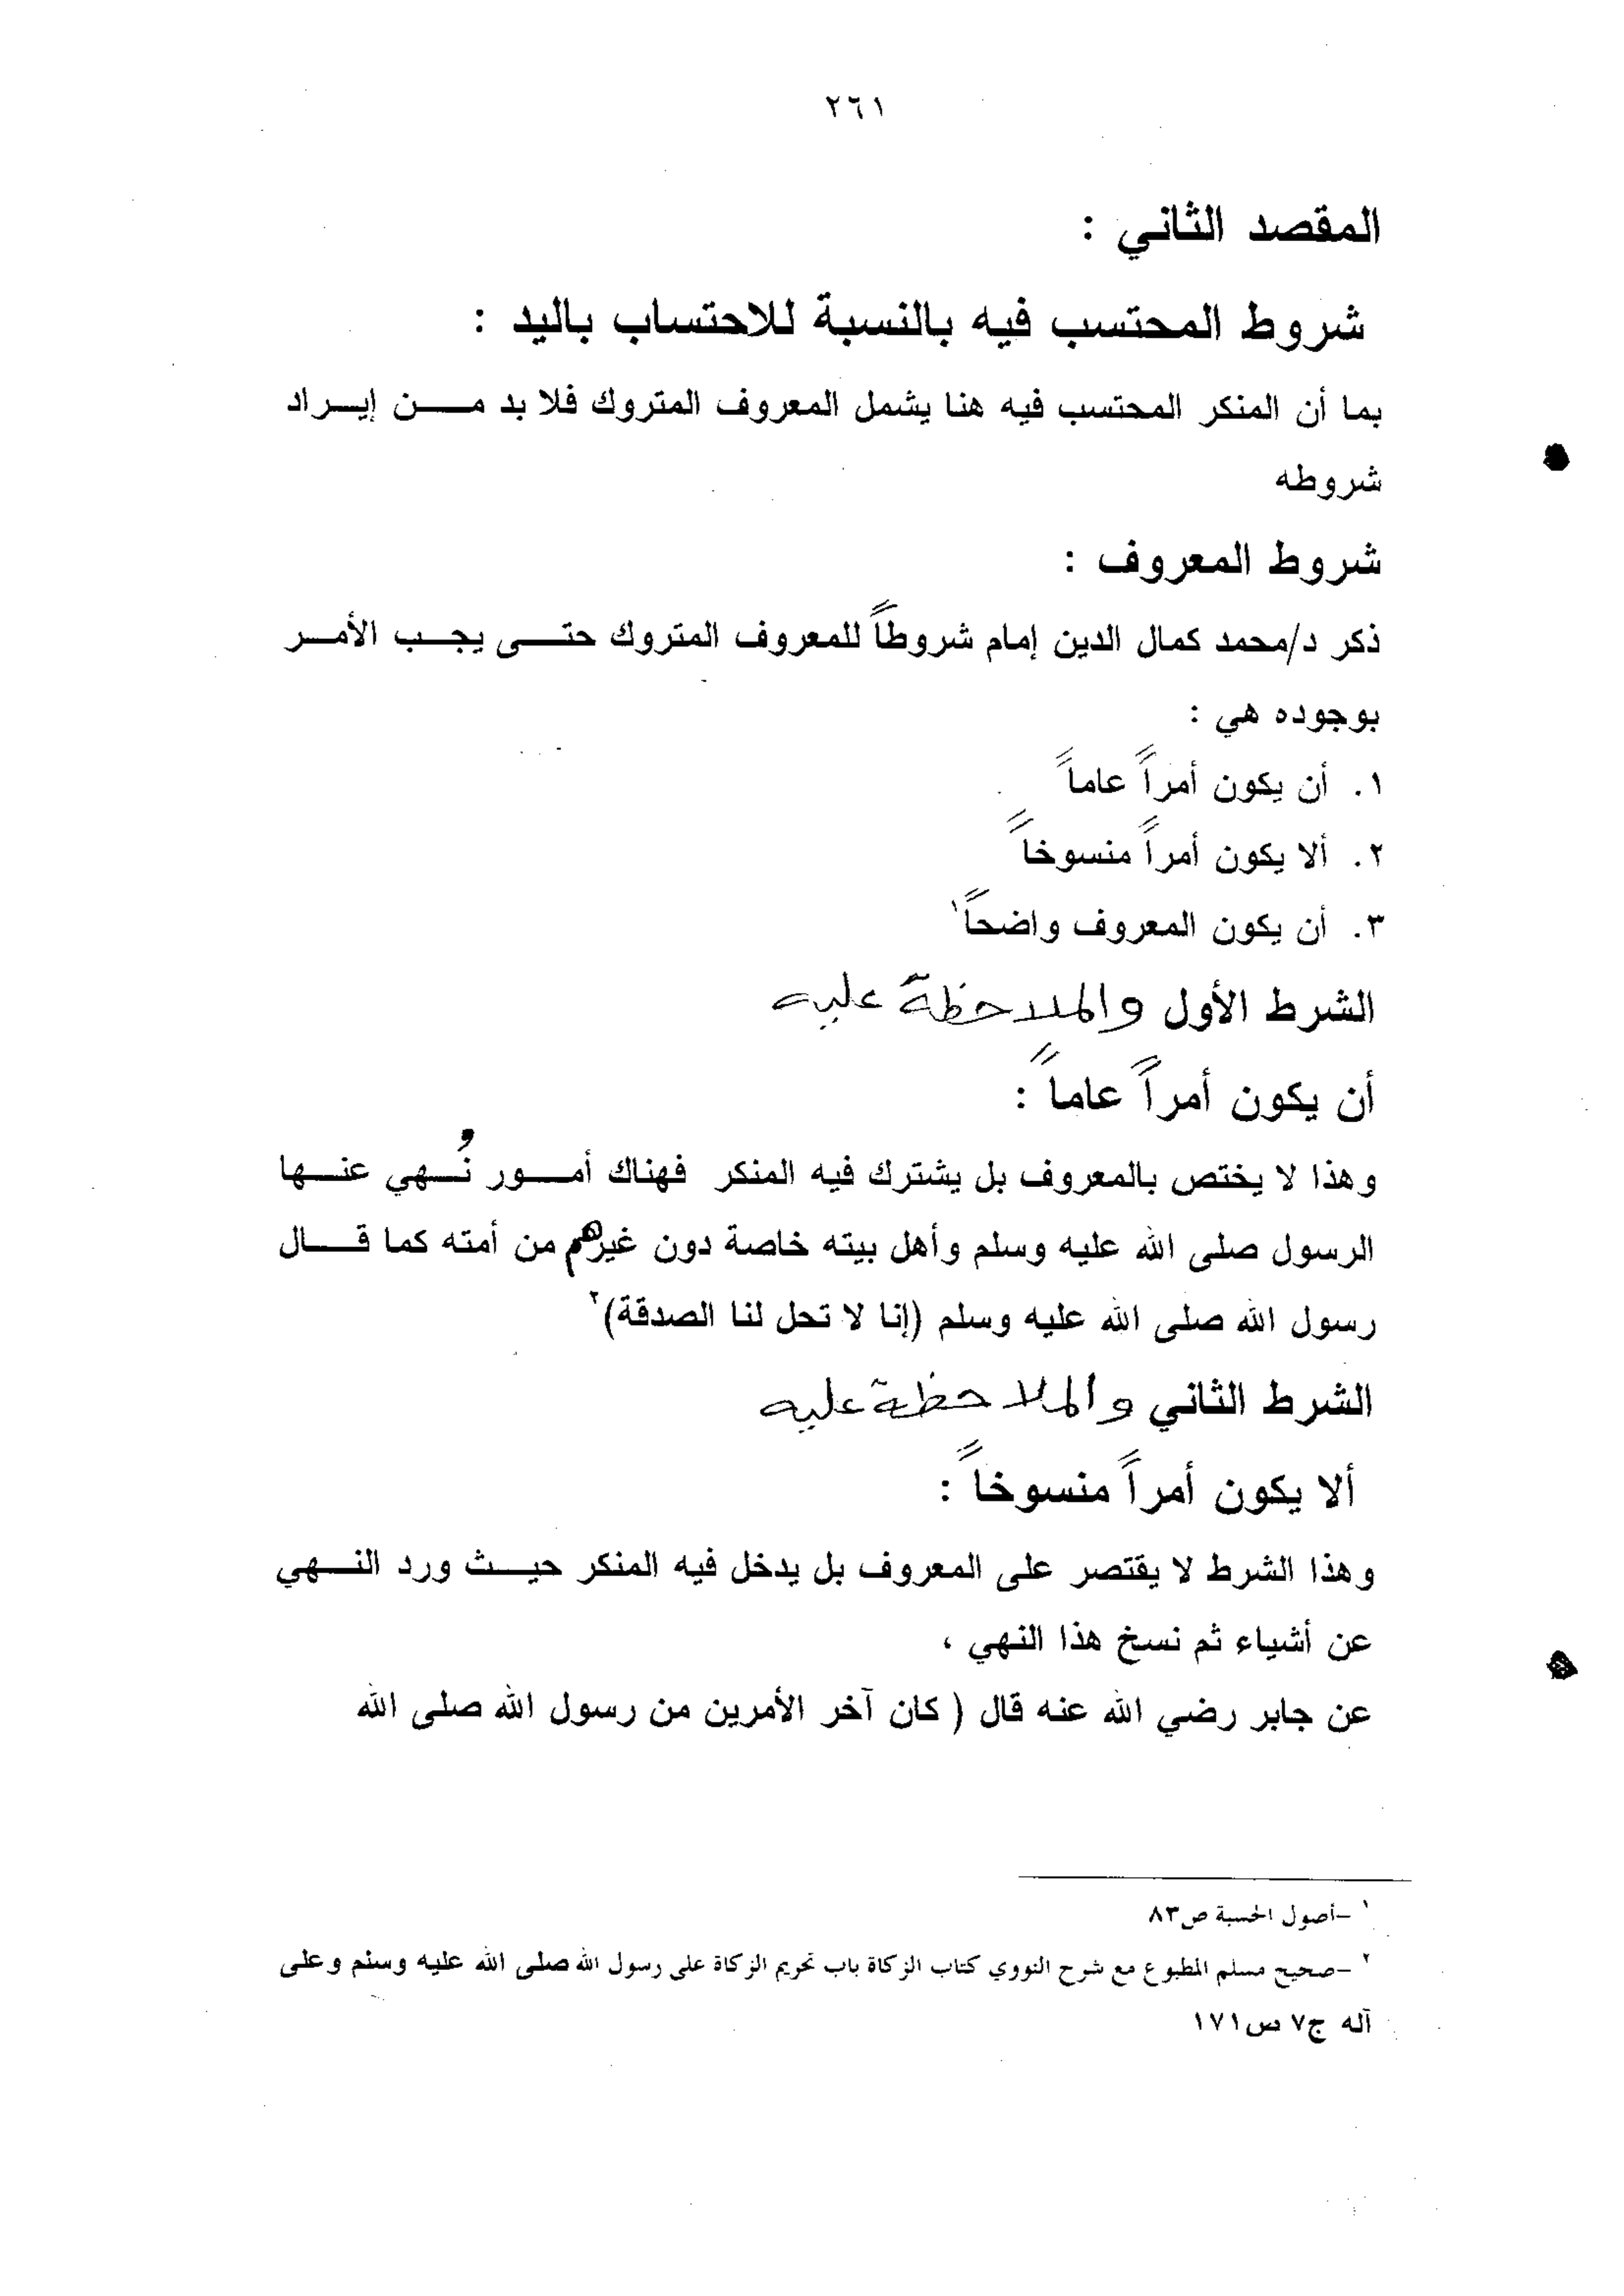 ٢٦١
المقصد الثاني :
شروط المحتسب فيه بالنسبة للاحتساب باليد :
بما أن المنكر المحتسب فيه هنا يشمل المعروف المتروك فلا بد مـــن إيـــراد
شروطه
شروط المعروف :
ذكر د/محمد كمال الدين إمام شروطاً للمعروف المتروك حتـــى يجـــب الأمـــر
بوجوده هي :
١. أن يكون أمراً عاماً
٢. ألا يكون أمراً منسوخاً
٣. أن يكون المعروف واضحاً١
الشرط الأول والملاحظة عليه
أن يكون أمراً عاماً :
وهذا لا يختص بالمعروف بل يشترك فيه المنكر فهناك أمـــور نُـــهي عنـــها
الرسول صلى الله عليه وسلم وأهل بيته خاصة دون غيرهم من أمته كما قـــال
رسول الله صلى الله عليه وسلم (إنا لا تحل لنا الصدقة)٢
الشرط الثاني والملاحظة عليه
ألا يكون أمراً منسوخاً :
وهذا الشرط لا يقتصر على المعروف بل يدخل فيه المنكر حيـــث ورد النـــهي
عن أشياء ثم نسخ هذا النهي ،
عن جابر رضي الله عنه قال ( كان آخر الأمرين من رسول الله صلى الله
١ -أصول الحسبة ص٨٣
٢ -صحيح مسلم المطبوع مع شرح النووي كتاب الزكاة باب تحريم الزكاة على رسول الله صلى الله عليه وسلم وعلى
آله ج٧ ص١٧١